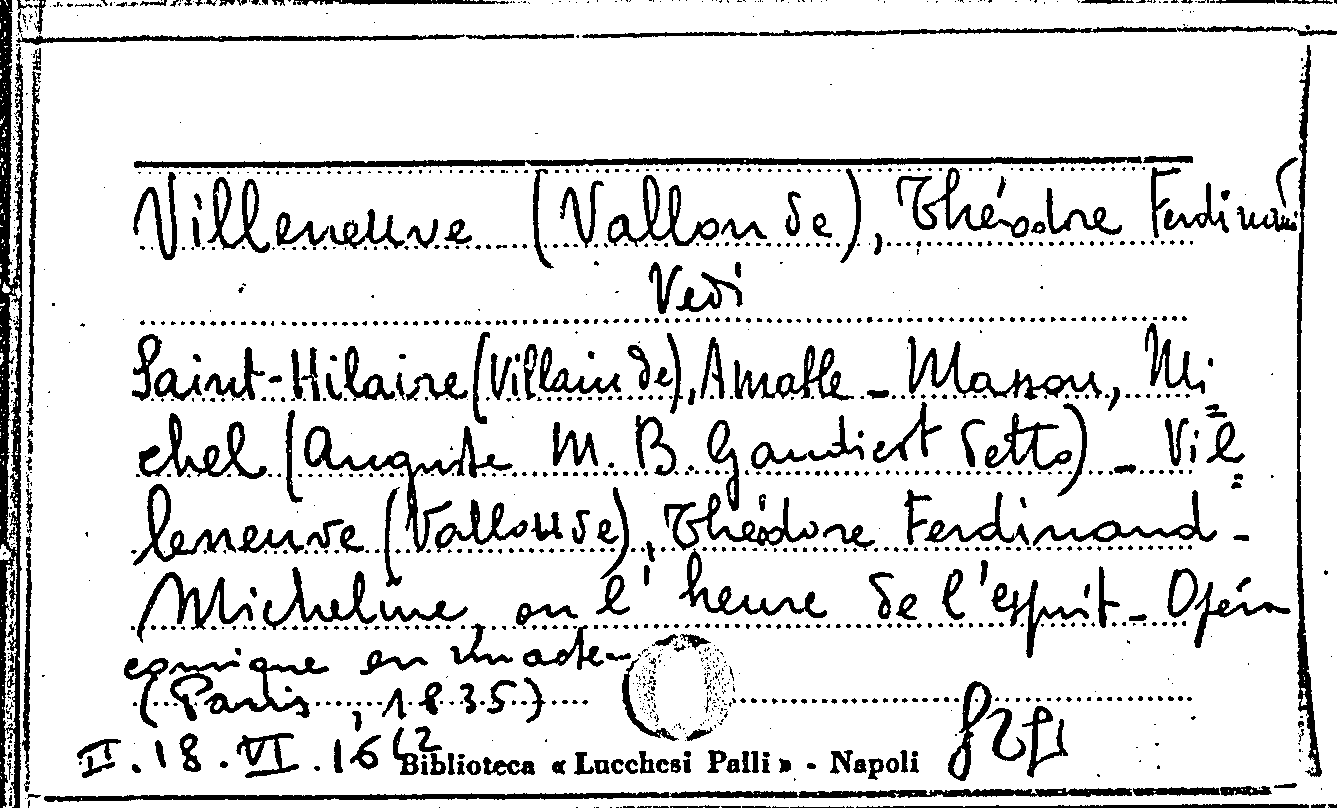 Villeneuve (Vallon de), Théodore Ferdinand
Vedi
Saint-Hilaire (Villain de), Amable - Masson, Mi=
chel (Auguste M. B. Gaudiert detto) - Vil=
leneuve (Vallou de), Théodore Ferdinand -
Micheline, ou l'heure de l'esprit - Opéra
comique en un acte -
(Paris, 1835)
II. 18. VI. 16 (2
Biblioteca « Lucchesi Palli » - Napoli